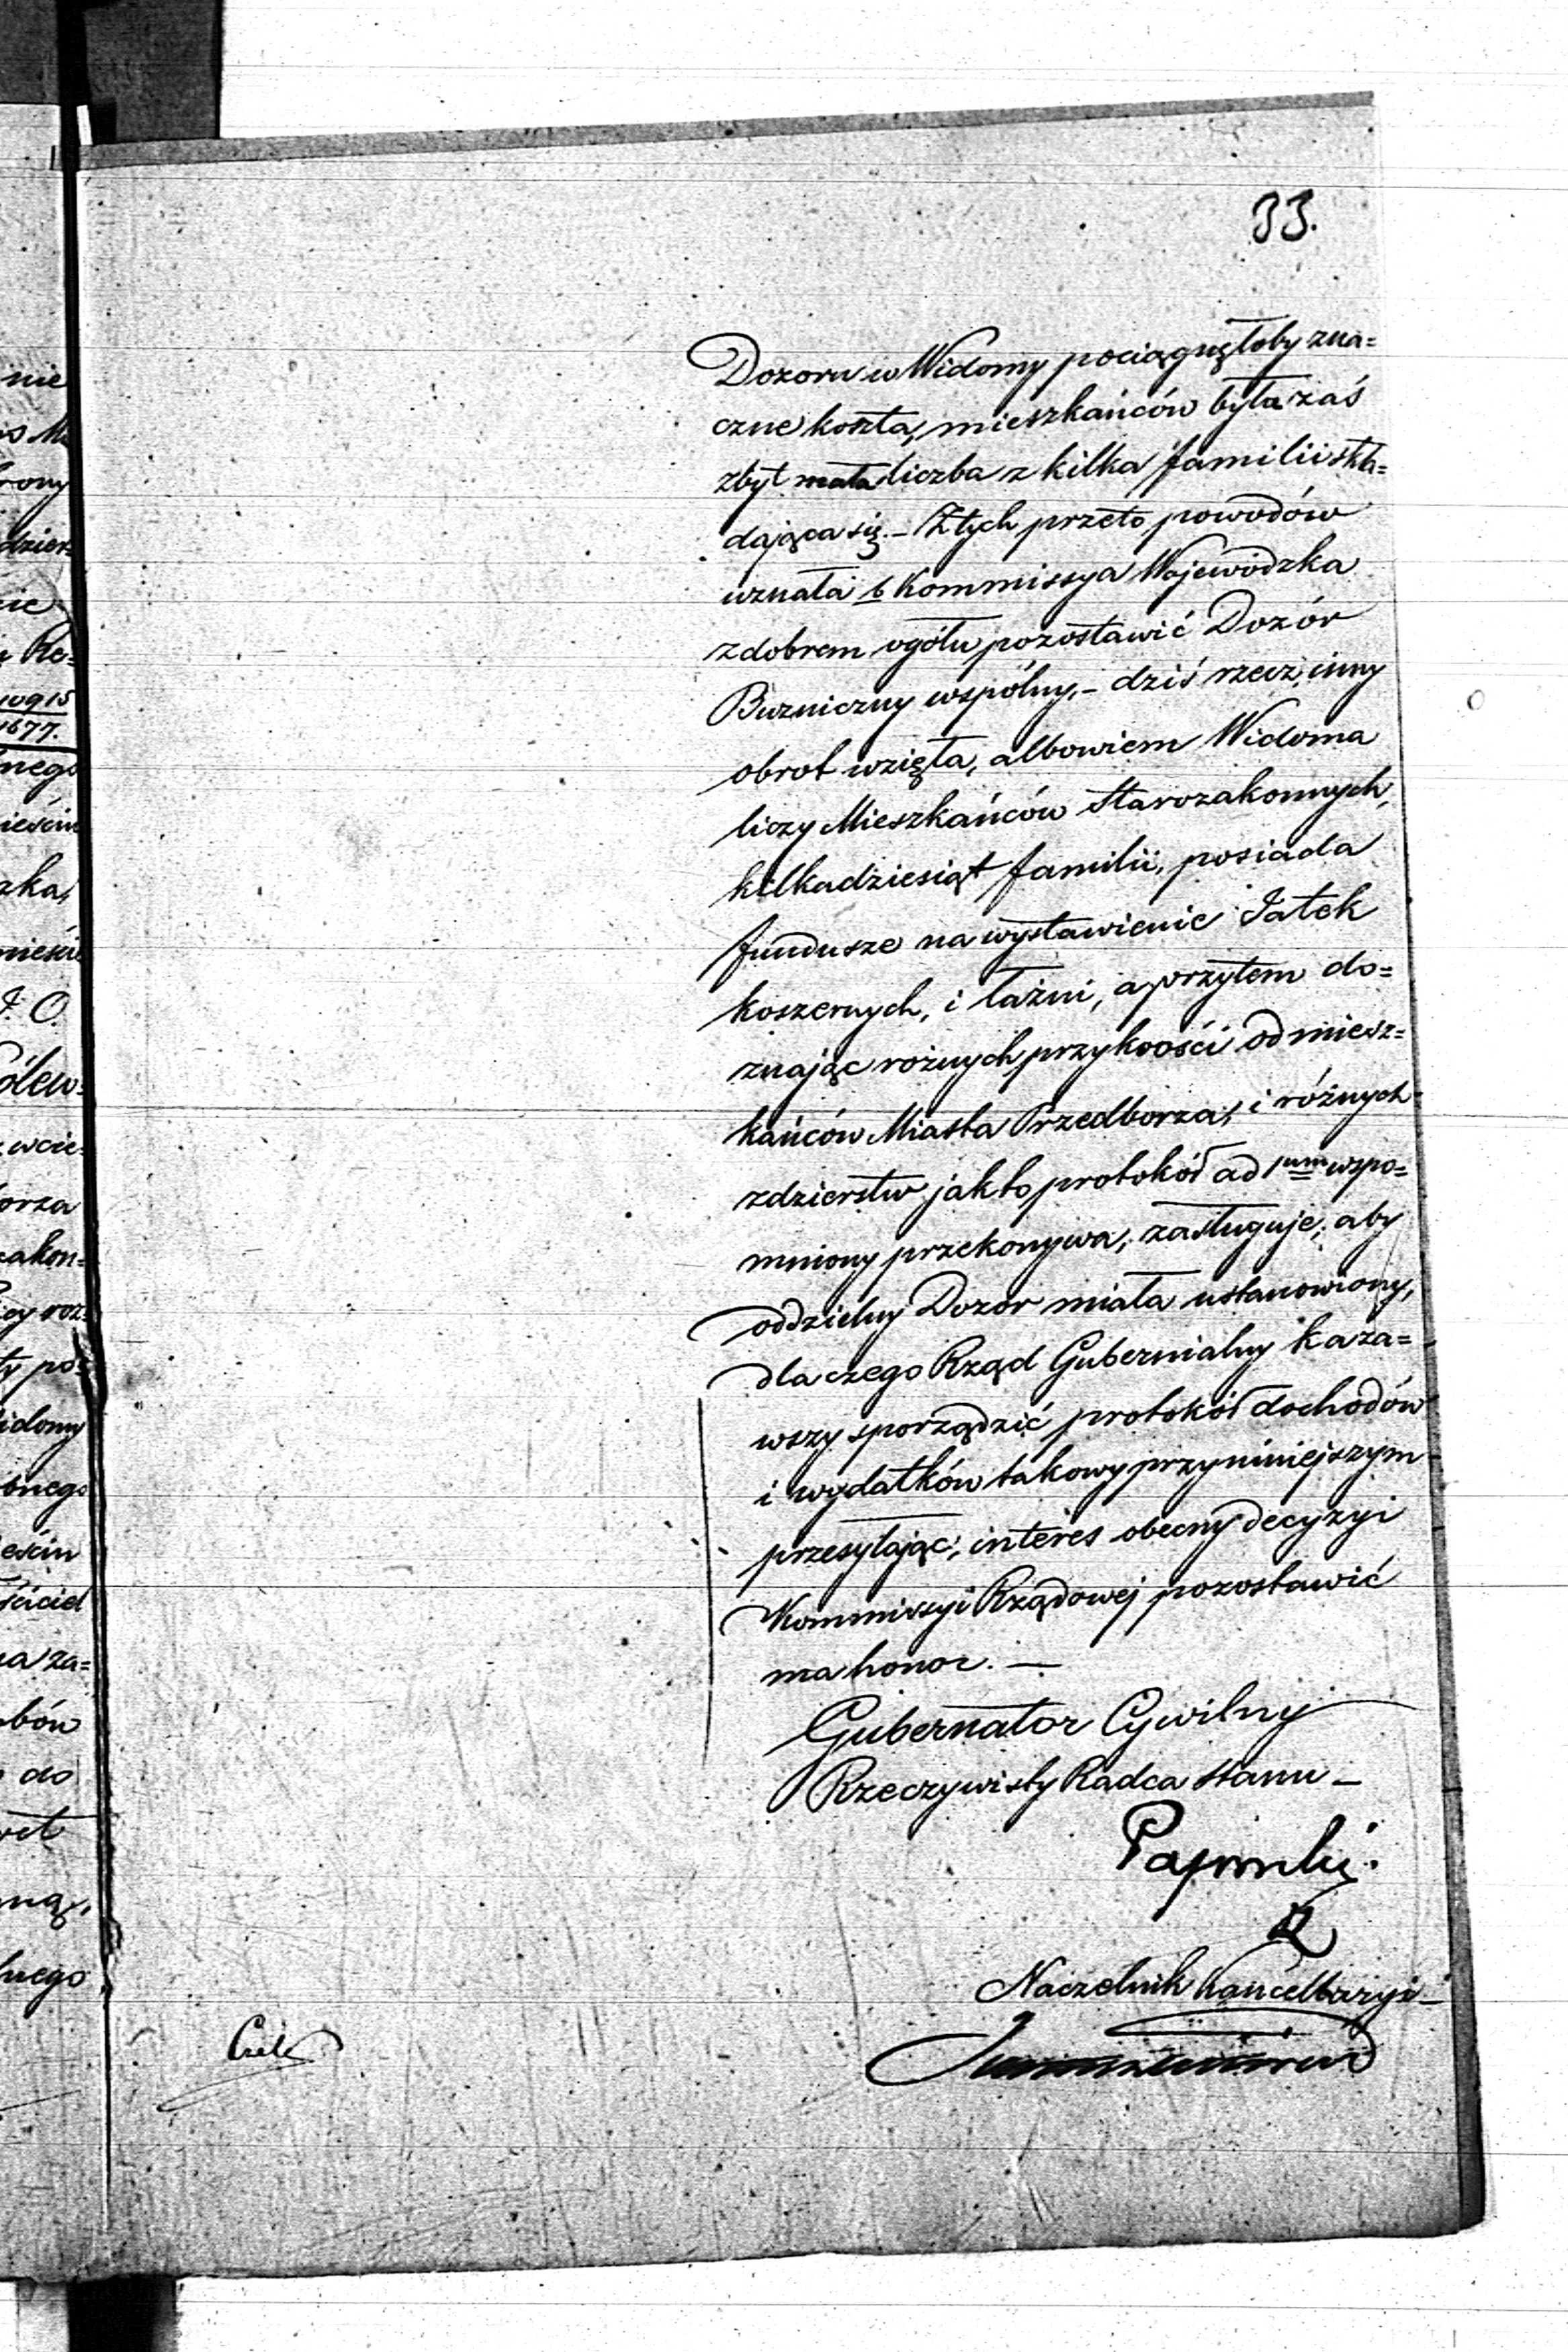 33.
Dozoru w Widomy pociągnęłoby zna=
czne koszta, mieszkańców była zaś
zbyt mała liczba z kilka familii skła=
dająca się. – Z tych przeto powodów
uznała b Kommissya Wojewódzka
z dobrem ogółu pozostawić Dozór
Bużniczny wspólny, – dziś rzecz inny
obrot wzięła, albowiem Widoma
liczy Mieszkańców Starozakonnych,
kilkadziesiąt familii, posiada
fundusze na wystawienie Jatek
koszernych, i łaźni, a przytem do=
znając rożnych przykrości od miesz=
kańców Miasta Przedborza, i różnych
zdzierstw jak to protokół ad 1um wspo=
mniony przekonywa, zasługuje, aby
oddzielny Dozor miała ustanowiony,
dla czego Rząd Gubernialny kaza=
wszy sporządzić protokół dochodów
i wydatków takowy przy niniejszym
przesyłając, interes obecny decyzyi
Kommissyi Rządowej pozostawić
ma honor. —
Gubernator Cywilny
Rzeczywisty Radca Stanu –
Naczelnik Kancellaryi –
nie
rony
dzier=
nego
zka,
J. O.
wcie=
orza
zakon=
ty po=
idomy
bnego
na za=
bów
do
lnego